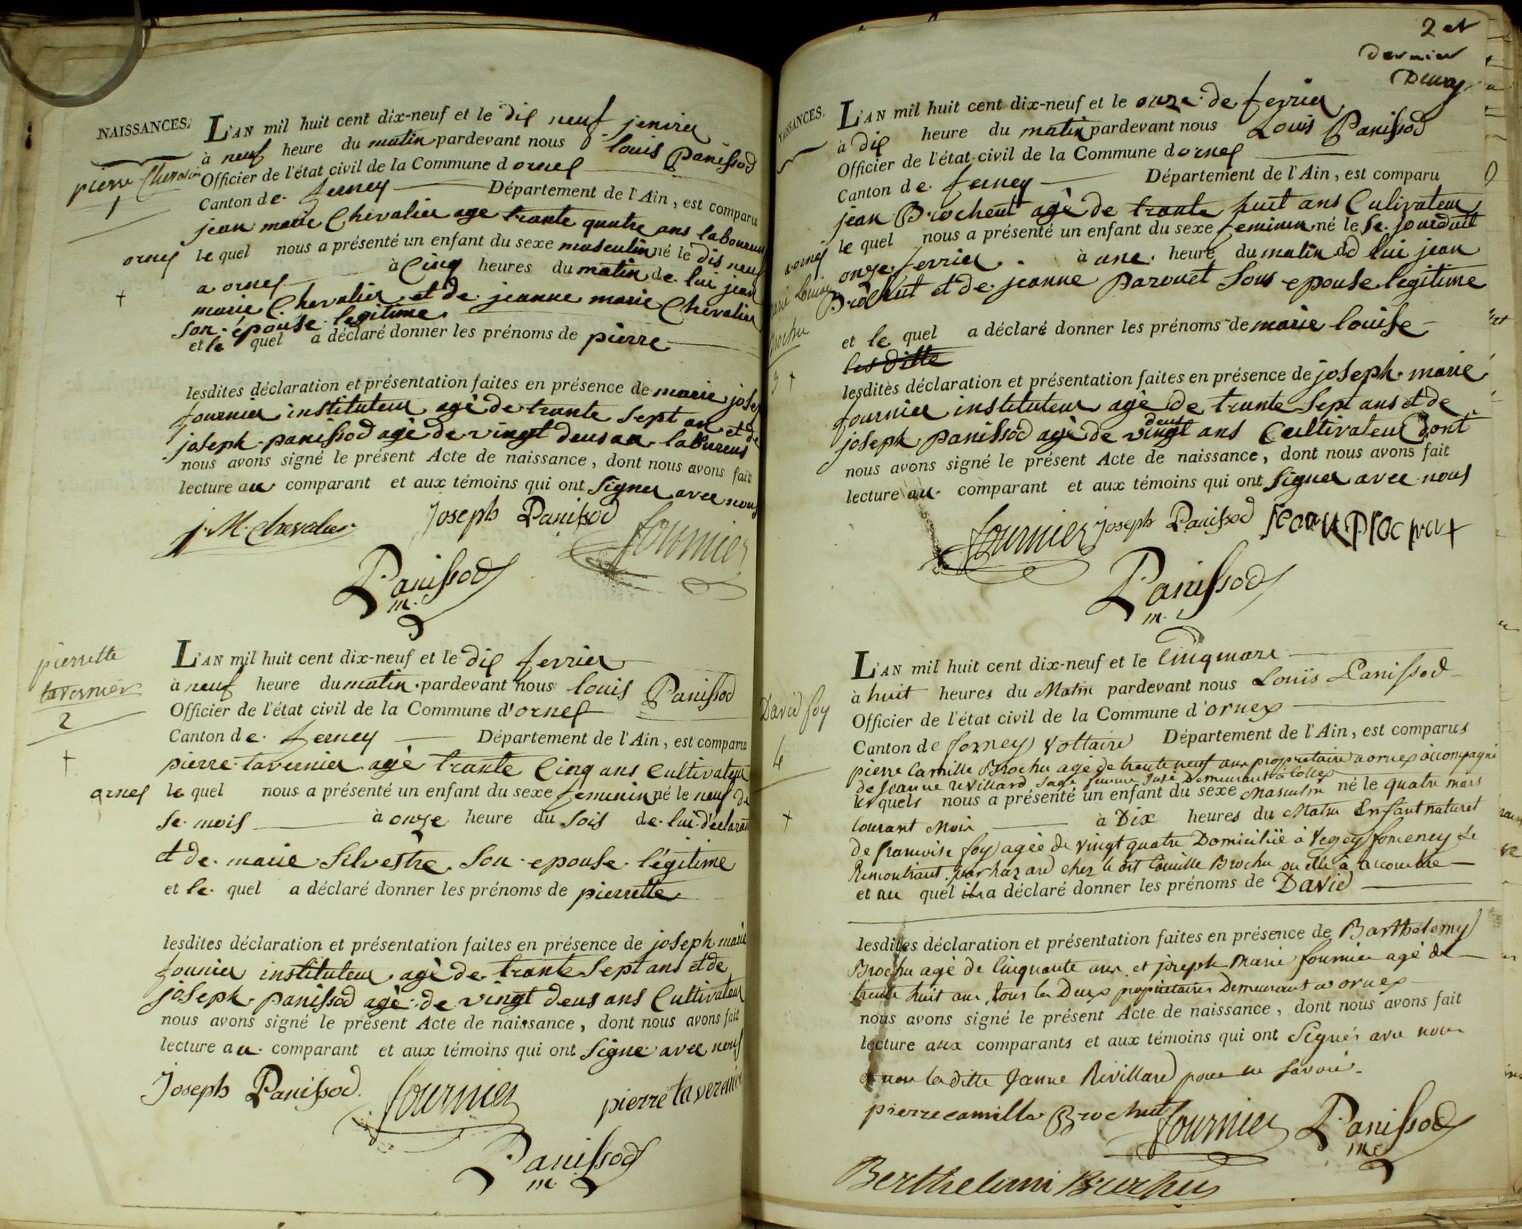 NAISSANCES.
pierre Chevalier
1
ornex
L'AN mil huit cent dix-neuf et le dix neuf janvier
à neuf heure du matin pardevant nous louis Panissod
Officier de l'état civil de la Commune d ornex
Canton de ferney Département de l'Ain, est comparu
jean marie Chevalier age trante quatre ans laboureur
le quel nous a présenté un enfant du sexe masculin né le dis neuf
a ornex à Cinq heures du matin de lui jean
marie Chevalier et de jeanne marie Chevalier
son épouse legitime
et le quel a déclaré donner les prénoms de pierre
lesdites déclaration et présentation faites en présence de marie josep
fournier instituteur agé de trante sept an et de
joseph panissod agé de vingt deus an laboureus
nous avons signé le présent Acte de naissance, dont nous avons fait
lecture au comparant et aux témoins qui ont signer avec nous
j. M. Chevalier Joseph Panissod fournier
Panissod
m.
pierrette
tavernier
2
ornex
L'AN mil huit cent dix-neuf et le dix fevrier
à neuf heure du matin pardevant nous louis Panissod
Officier de l'état civil de la Commune d'ornex
Canton de ferney Département de l'Ain, est comparu
pierre tavernier agé trante Cinq ans Cultivateur
le quel nous a présenté un enfant du sexe feminin né le neuf de
se mois à onze heure du sois de lui déclarant
et de marie Silvestre son epouse légitime
et le quel a déclaré donner les prénoms de pierrette
lesdites déclaration et présentation faites en présence de joseph marie
fournier instituteur agé de trante sept ans et de
joseph panissod agé de vingt deus ans Cultivateur
nous avons signé le présent Acte de naissance, dont nous avons fait
lecture au comparant et aux témoins qui ont signe avec nous
Joseph Panissod fournier pierre taverniér
Panissod
m.
2 et
dernier
NAISSANCES.
ornex
marie Louise
Brochu
3
L'AN mil huit cent dix-neuf et le onze de fevrier
à dix heure du matin pardevant nous Louis Panissod
Officier de l'état civil de la Commune d ornex
Canton de ferney Département de l'Ain, est comparu
jean Brochent agé de trante huit ans Cultivateur
le quel nous a présenté un enfant du sexe feminin né le se jourduit
onze fevrier à une heure du matin de lui jean
Brochut et de jeanne parouet sous epouse legitime
et le quel a déclaré donner les prénoms de marie louise
les ditte
lesdites déclaration et présentation faites en présence de joseph marie
fournier instituteur agé de trante sept ans et de
joseph panissod agé de vingt deus ans Cultivateur dont
nous avons signé le présent Acte de naissance, dont nous avons fait
lecture au comparant et aux témoins qui ont signer avec nous
fournier joseph Panissod
Panissod
m.
David foy
4
L'AN mil huit cent dix-neuf et le Cinq mars
à huit heures du Matin pardevant nous Louis Panissod
Officier de l'état civil de la Commune d'ornex
Canton de ferney Voltaire Département de l'Ain, est comparus
pierre Camille Brochu agé de trente neuf ans propriétaire a ornex accompagné
de Jeanne Revillard Sage femme Juré Demeurant à Collex
lesquels nous a présenté un enfant du sexe Masculin né le quatre mars
Courant Mois à Dix heures du Matin Enfant naturel
de francoise foy agée de vingt quatre Domiciliée à
Rencontrant par hazard chez le dit Camille Brochu ou elle a accouché
et au quel il a déclaré donner les prénoms de David
lesdites déclaration et présentation faites en présence de Barthelemy
Brochu agé de Cinquante ans et joseph Marie fournier agé de
trente huit ans tous les Deux propriétaires Demeurant a ornex
nous avons signé le présent Acte de naissance, dont nous avons fait
lecture aux comparants et aux témoins qui ont Signés avec nous
et non la ditte Janne Revillard pour ne savoir
pierre camille Brochut fournier Panissod
m.
Berthelemi Brochu